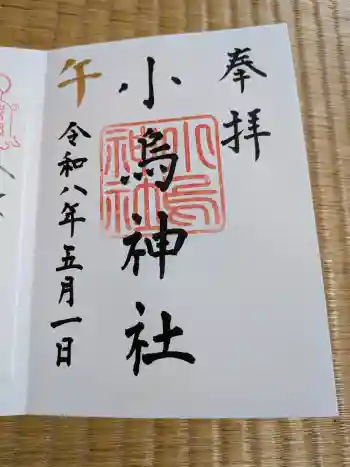 奉拝
小烏神社
小烏神社
午
令和八年五月一日